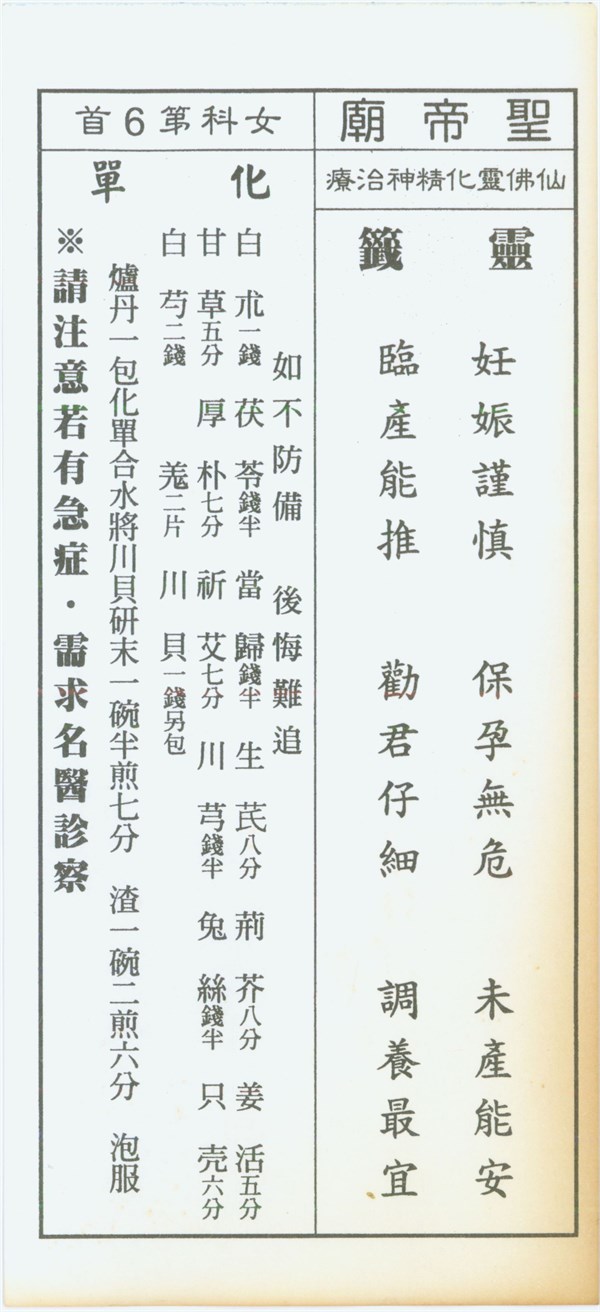 聖帝廟
仙佛靈化精神治療
靈籤
妊娠謹慎 保孕無危 未產能安
臨產能推 勸君仔細 調養最宜
女科第6首
化單
如不防備 後悔難追
白朮一錢 茯苓錢半 當歸錢半 生芪八分 荊芥八分 姜活五分
甘草五分 厚朴七分 祈艾七分 川芎錢半 兔絲錢半 只壳六分
白芍二錢 羗二片 川貝一錢另包
爐丹一包化單合水將川貝研末一碗半煎七分 渣一碗二煎六分 泡服
※請注意若有急症・需求名醫診察